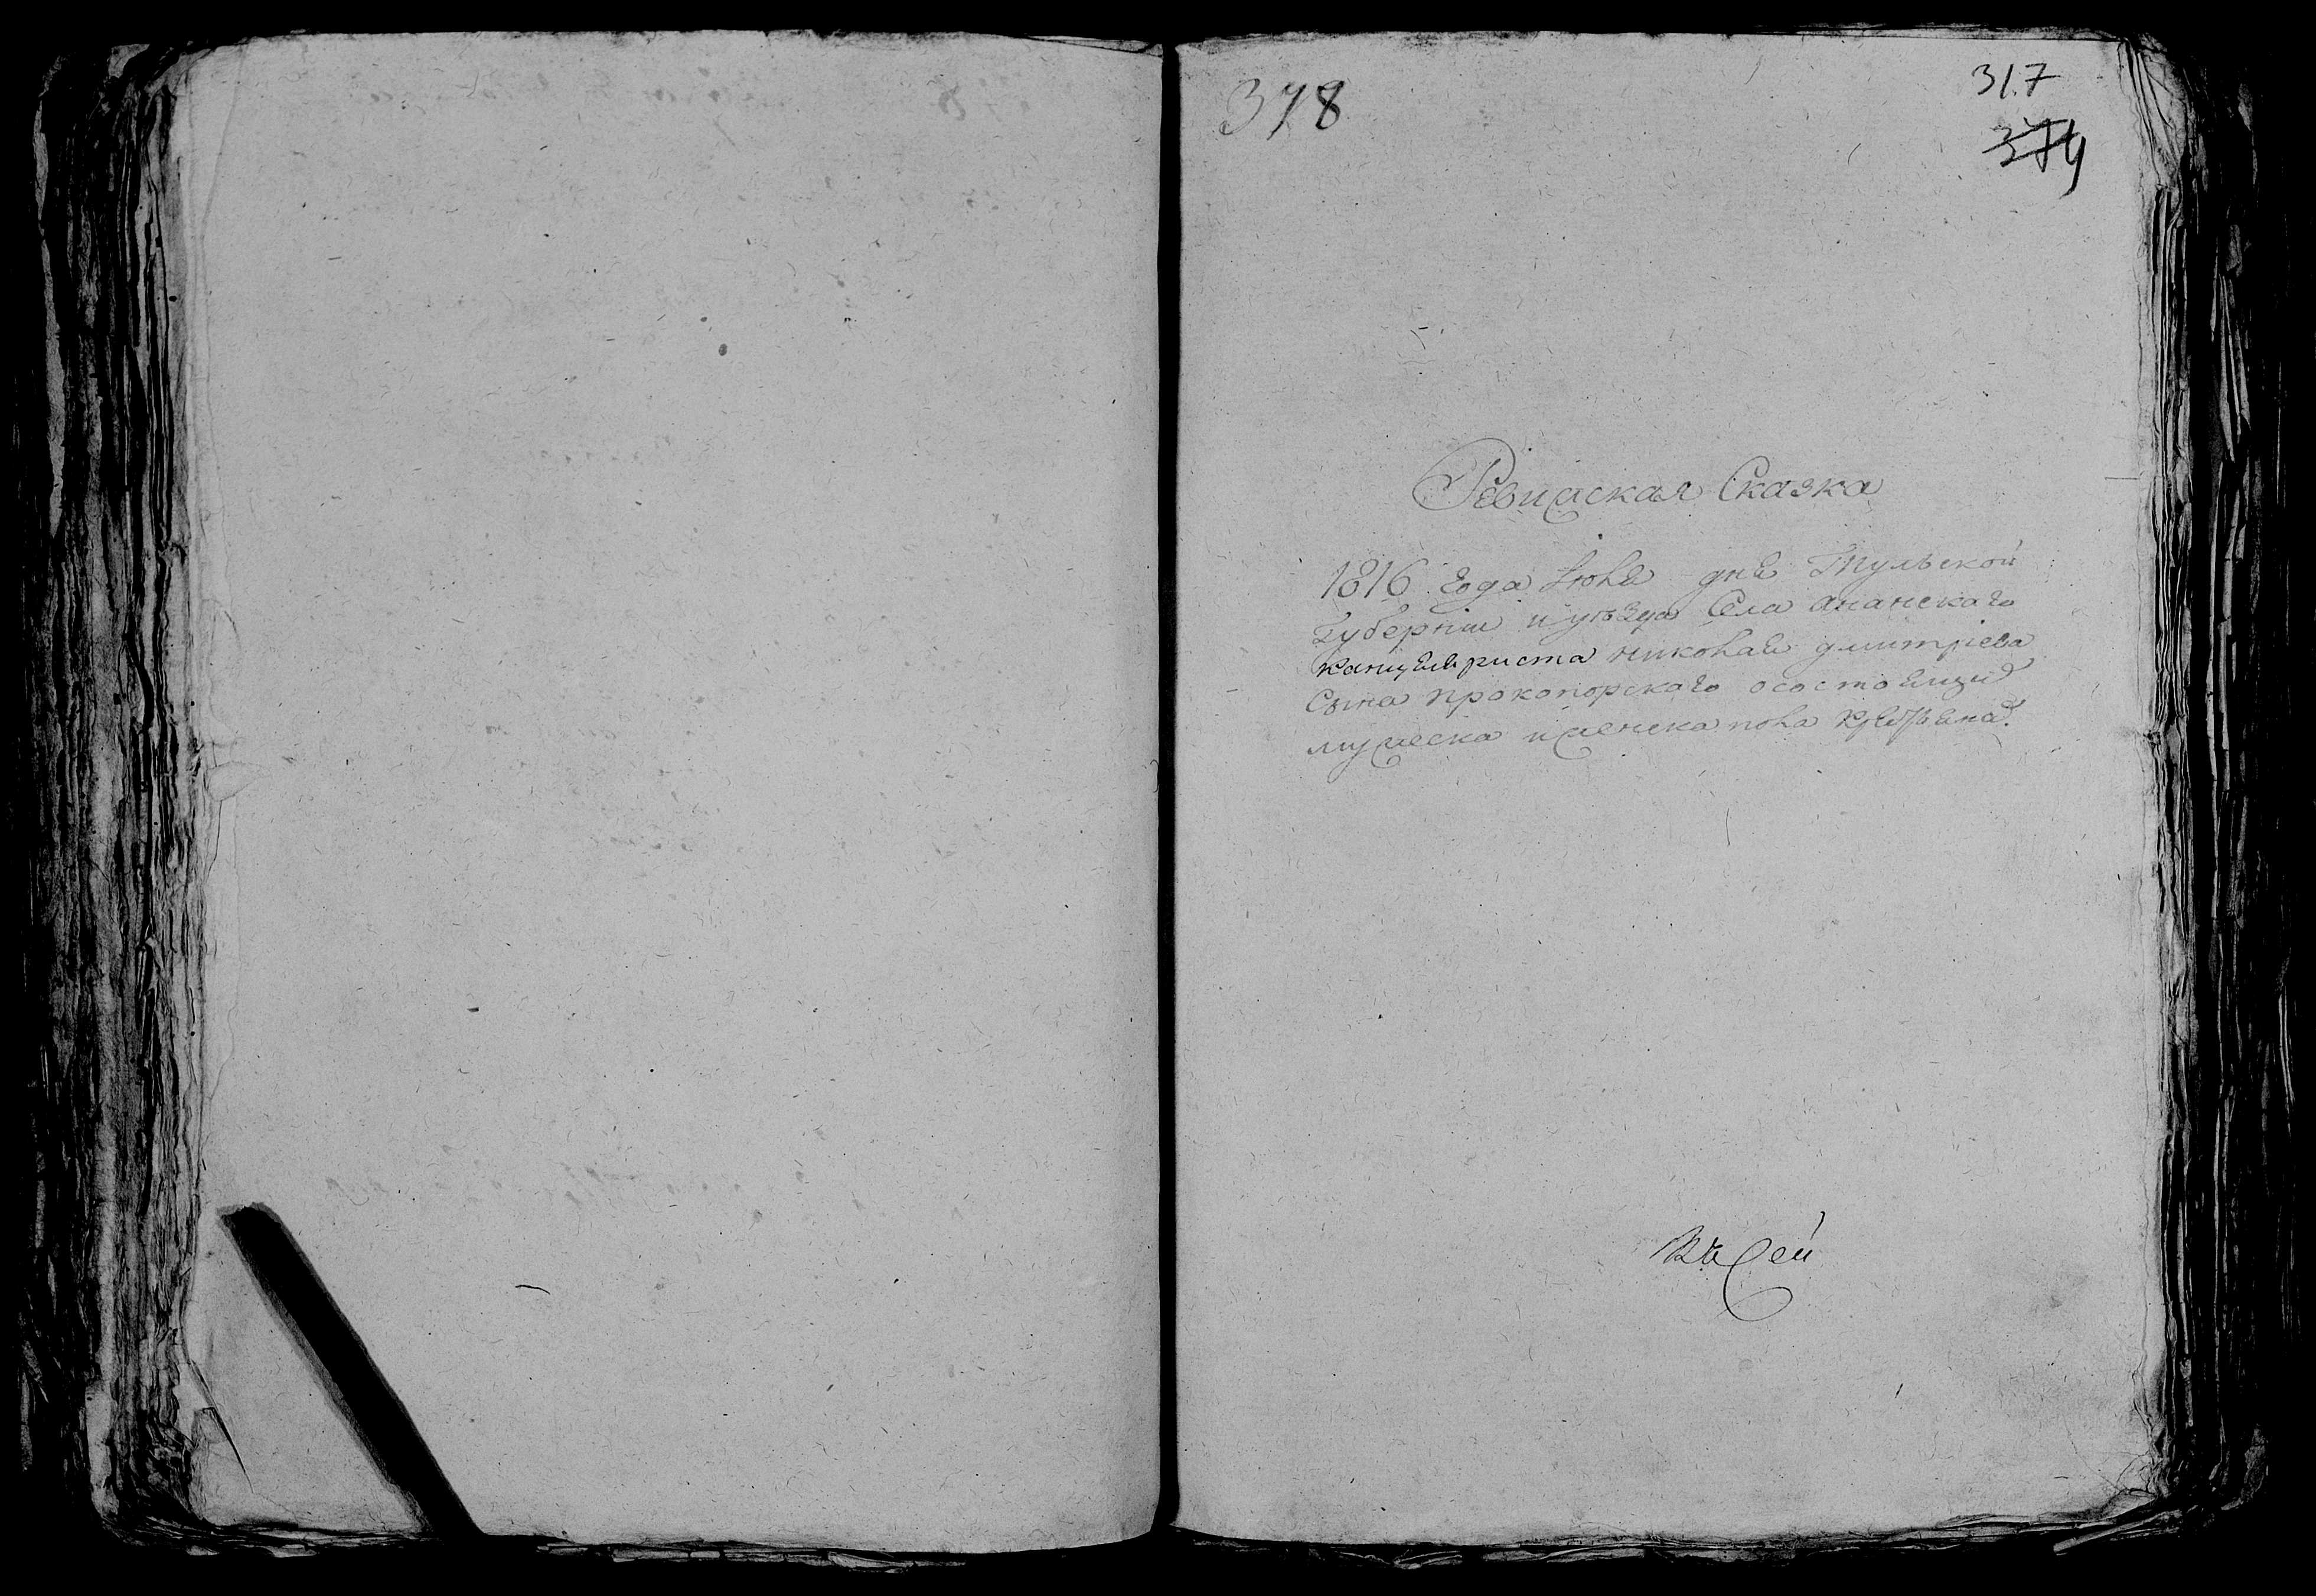 378
317
374
Ревиская Сказка
1816 года Июля дня Тульской
Губернии и уѣзда Села ананскаго
канцеляриста николая дмитріева
Сына прокопорскаго о состоящих
мужеска и женска пола крестьянах
Къ Сей